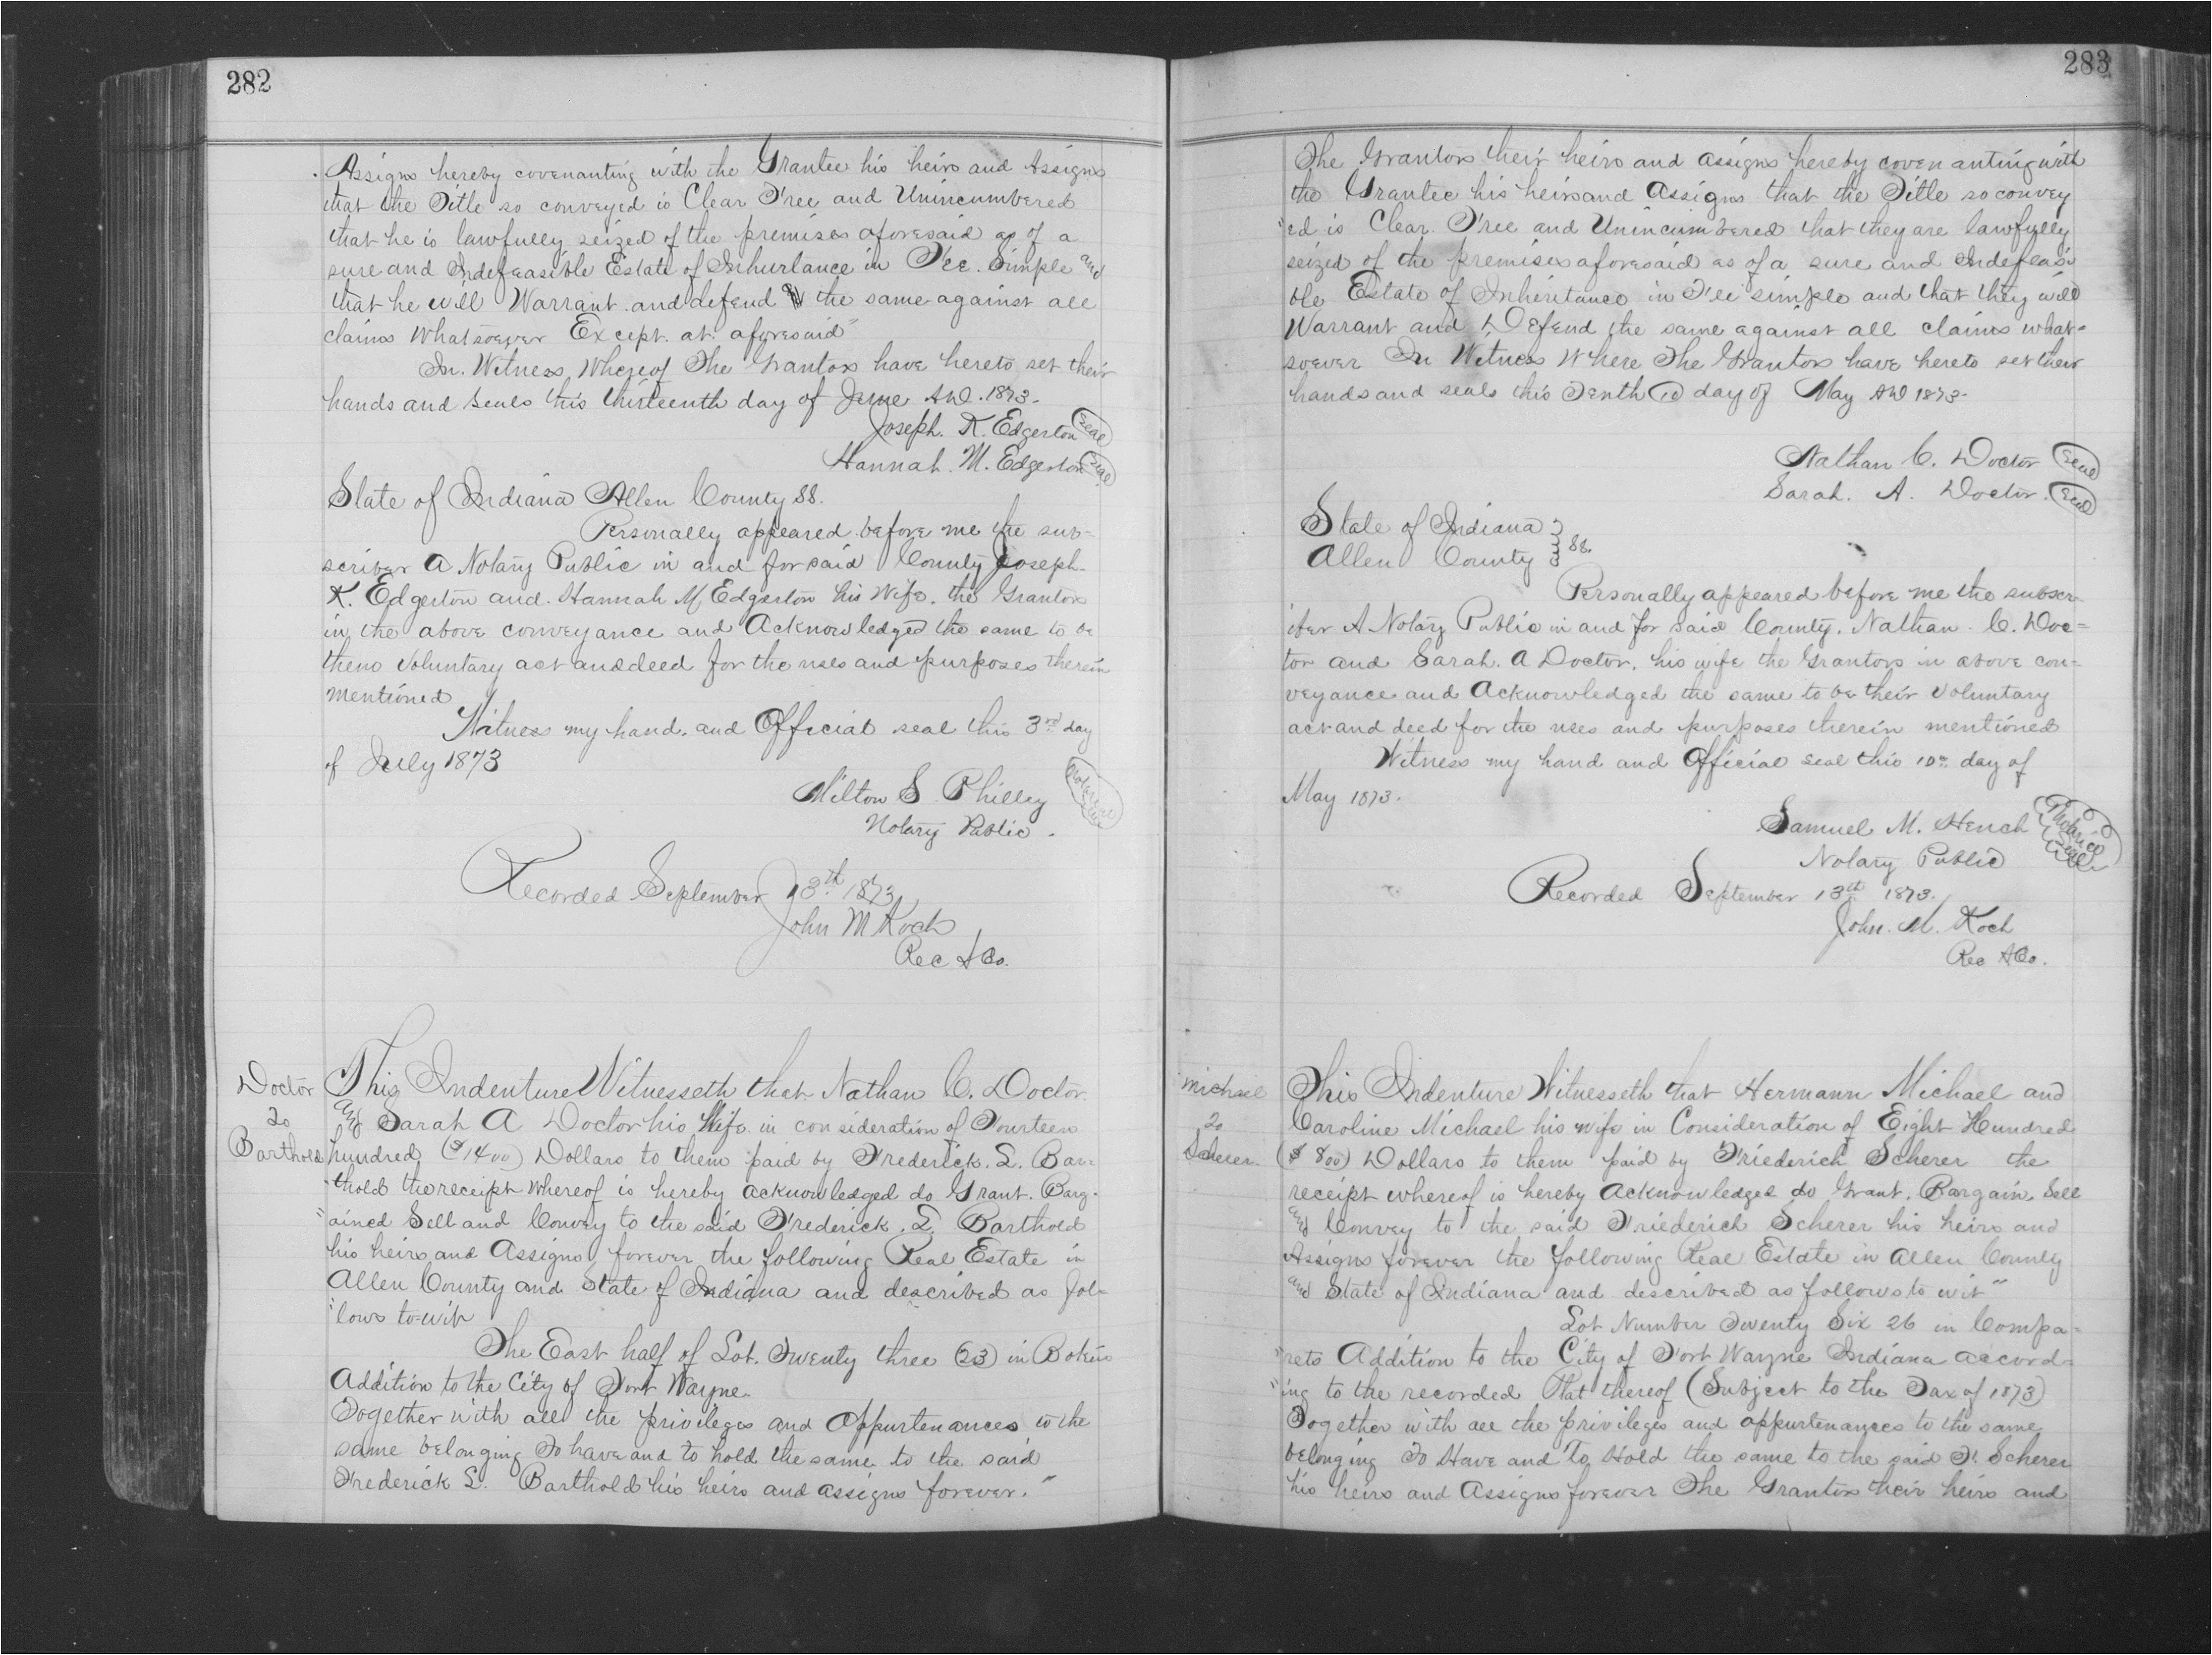 282
Assigns hereby covenanting with the Grantee his heirs and Assigns
that the Title so conveyed is Clear Free and Unincumbered
that he is lawfully seized of the premises aforesaid as of a
sure and Indefeasible Estate of Inhurlance in Fee. Simple and
that he will Warrant and defend the same against all
claims Whatsoever Except. at. aforesaid"
In. Witness, Whereof The Grantors have hereto set their
hands and seals this thirteenth day of June AD. 1873.
Joseph. K. Edgerton Seal
Hannah. M. Edgerton Seal
State of Indiana Allen County SS.
Personally appeared before me the sub-
scriber A Notary Public in and for said County Joseph
K. Edgerton and. Hannah M, Edgerton his Wife, the Grantors
in, the above conveyance and Acknowledged the same to be
theno voluntary act and deed for the uses and purposes therein
mentioned
Witness my hand. and Official seal this 3rd day
of July 1873
Milton S Philley
Notary Public.
Recorded September 13th 1873
John M Koch
Rec A Co.
Doctor
To
Barthold
This Indenture Witnesseth that Nathan C. Doctor
and Sarah A Doctor his Wife in consideration of Fourteen
hundred ($1400) Dollars to them paid by Frederick. L. Bar=
thold the receipt whereof is hereby acknowledged do Grant. Barg-
"ained Sell and Convey to the said Frederick. L. Barthold
his heirs and Assigns forever the following Real Estate in
Allen County and State of Indiana and described as fol=
"lows to-wit
The East half of Lot. Twenty three (23) in
Addition to the City of Fort Wayne.
Together with all the privileges and Appurtenances to the
same belonging To have and to hold the same to the said
Frederick L. Barthold his heirs and assigns forever."
283
The Grantors their heirs and assigns hereby covenanting with
the Grantee his heirs and Assigns that the Title so convey
"ed is Clear. Free and Unincumbered that they are lawfully
seized of the premises aforesaid as of a sure and Indefeasi
ble Estate of Inheritance in Fee simple and that they will
Warrant and Defend the same against all claims what=
soever In Witness Where The Grantors have hereto set their
hands and seals this Tenth 10 day of May AD 1873-
Nathan C. Doctor Seal
Sarah. A. Doctor. Seal
State of Indiana
Allen County SS.
Personally appeared before me the subscr
iber A Notary Public in and for said County. Nathan C. Doc=
tor and Sarah. A Doctor, his wife the Grantors in above con=
veyance and Acknowledged the same to be their voluntary
act and deed for the uses and purposes therein mentioned
Witness my hand and Official seal this 10th day of
May 1873.
Samuel M. Hench Notarial Seal
Notary Public
Recorded September 13th 1873.
John. M. Koch
Rec A.Co.
Michael
To
Scherer
This Indenture Witnesseth that Hermann Michael and
Caroline Michael his wife in Consideration of Eight Hundred
($ 800) Dollars to them paid by Friederich Scherer the
receipt whereof is hereby Acknowledged do Grant, Bargain, Sell
and Convey to the said Friederich Scherer his heirs and
Assigns forever the following Real Estate in Allen County
and State of Indiana and described as follows to wit"
Lot Number Twenty Six 26 in Compa=
"rets Addition to the City of Fort Wayne Indiana accord=
"ing to the recorded Plat thereof (Subject to the Tax of 1873)
Together with all the privileges and appurtenances to the same
belonging To Have and To Hold the same to the said F. Scherer
his heirs and Assigns forever The Grantors their heirs and